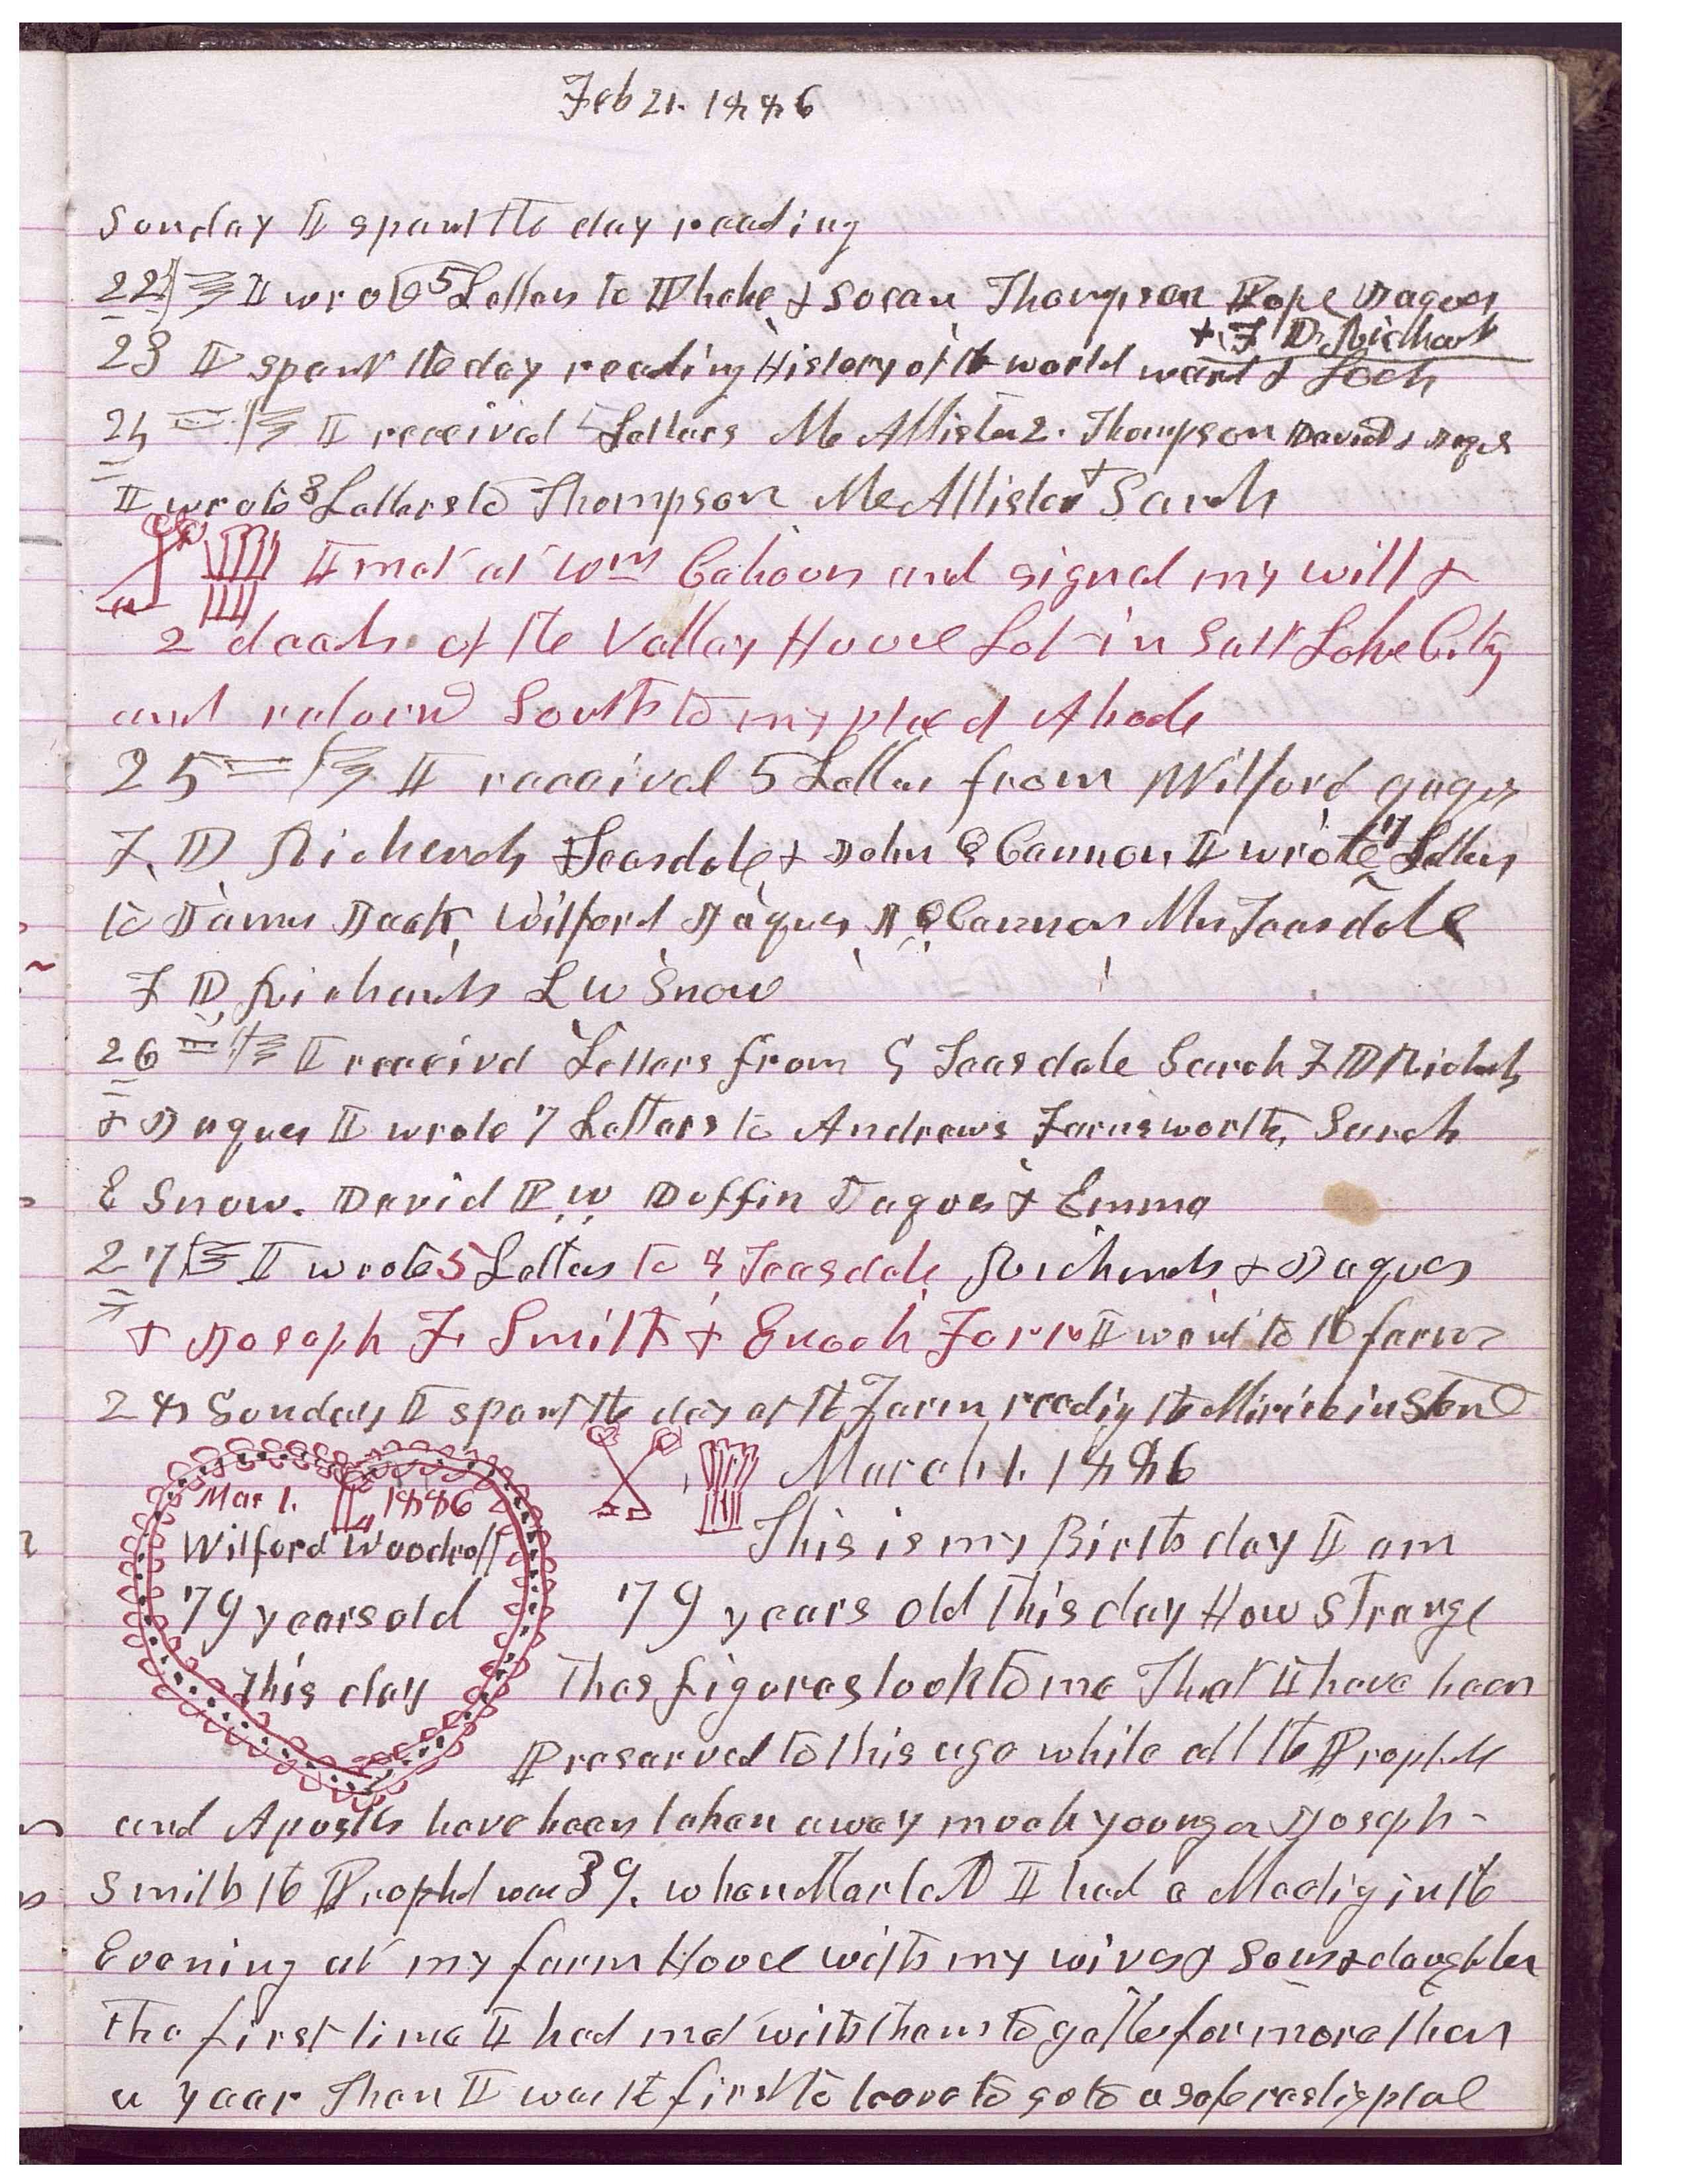 Feb 21. 1886
Sunday I spent the day reading
22 I wrote 5 Letters to Phebe & Susan Thompson Pope Jaques
& F D. Richards
23 I spent the day reading History of the world ward &
24 I received 5 Letters McAllister 2. Thompson David & Jaques
I wrote 3 Letters to Thompson McAllister & Sarah
I met at Wm Cahoon and signed my will &
2 deeds of the Valley House Lot in Salt Lake City
and return South to my place of Abode
25 I received 5 Letters from Wilford Jaques
F. D Richards Teasdale & John Q Cannon I wrote 7 Letters
to James Jack, Wilford Jaques J Q Cannon Mrs Teasdale
F D Richards L W Snow
26 I receivd Letters from G Teasdale Sarah F D Richards
& Jaques I wrote 7 Letters to Andrews Farnsworth, Sarah
E Snow. David P. W Duffin Jaques & Emma
27 I wrote 5 Letters to G Teasdale Richards & Jaques
& Joseph F. Smith & Enoch Farr I went to the farm
28 Sunday I spent the day at the Farm reading the Miricle in Stone
March 1. 1886
Mar 1. 1886
Wilford Woodruff
79 years old
this day
This is my Birth day I am
79 years old this day How Strange
thes figures look to me That I have been
Preserved to this age while all the Prophets
and Apostles have been taken away much younger Joseph
Smith the Prophet was 39. when Marterd I had a Meeting in the
Evening at my farm House with my wives & Sons & daughters
the first time I had met with them together for more than
a year Then I was the first to leave to go to a safe resting place